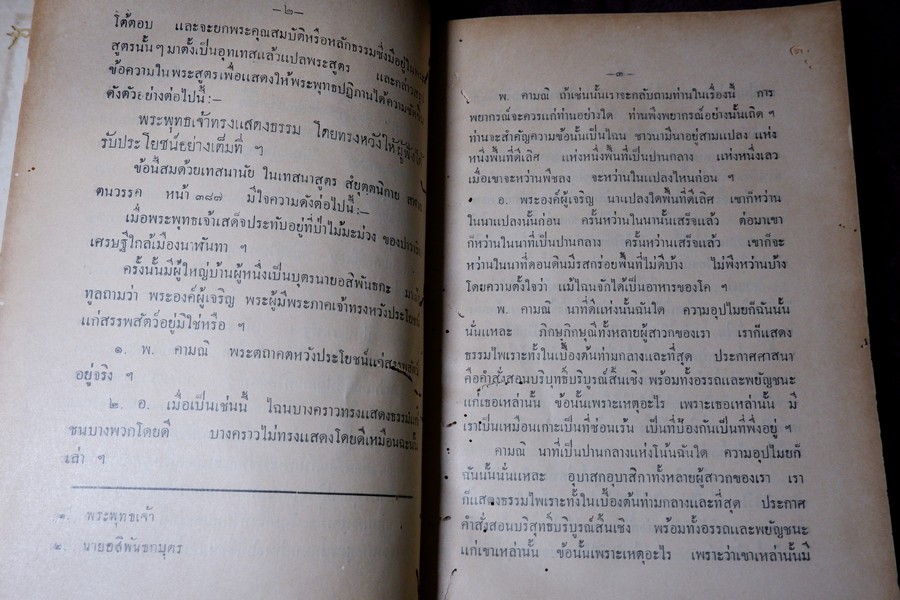 —๒—
โต้ตอบ และจะยกพระคุณสมบัติหรือหลักธรรมซึ่งมีอยู่ใน
สูตรนั้น ๆ มาตั้งเป็นอุทเทสแล้วแปลพระสูตร และกล่าว
ข้อความในพระสูตรเพื่อแสดงให้พระพุทธปฏิภานได้ความชัด
ดังตัวอย่างต่อไปนี้:—
พระพุทธเจ้าทรงแสดงธรรม โดยทรงหวังให้ผู้ฟังได้
รับประโยชน์อย่างเต็มที่ ฯ
ข้อนี้สมด้วยเทสนานัย ในเทสนาสูตร สํยุตตนิกาย
ตนวรรค หน้า ๓๘๗ มีใจความดังต่อไปนี้:—
เมื่อพระพุทธเจ้าเสด็จประทับอยู่ที่ป่าไม้มะม่วง ของปาวาริก
เศรษฐีใกล้เมืองนาฬันทา ฯ
ครั้งนั้นมีผู้ใหญ่บ้านผู้หนึ่งเป็นบุตรนายอสิพันธกะ
ทูลถามว่า พระองค์ผู้เจริญ พระผู้มีพระภาคเจ้าทรงหวังประโยชน์
แก่สรรพสัตว์อยู่มิใช่หรือ ฯ
๑. พ. คามณิ พระตถาคตหวังประโยชน์แก่สรรพสัตว์
อยู่จริง ฯ
๒. อ. เมื่อเป็นเช่นนี้ ไฉนบางคราวทรงแสดงธรรมแก่
ชนบางพวกโดยดี บางคราวไม่ทรงแสดงโดยดีเหมือนฉะนั้น
เล่า ฯ
๑. พระพุทธเจ้า
๒. นายอสิพันธกบุตร
—๓—
พ. คามณิ ถ้าเช่นนั้นเราจะกลับถามท่านในเรื่องนี้ การ
พยากรณ์จะควรแก่ท่านอย่างใด ท่านพึงพยากรณ์อย่างนั้นเถิด ฯ
ท่านจะสำคัญความข้อนั้นเป็นไฉน ชาวนามีนาอยู่สามแปลง แห่ง
หนึ่งพื้นที่ดีเลิศ แห่งหนึ่งพื้นที่เป็นปานกลาง แห่งหนึ่งเลว
เมื่อเขาจะหว่านพืชลง จะหว่านในแปลงไหนก่อน ฯ
อ. พระองค์ผู้เจริญ นาแปลงใดพื้นที่ดีเลิศ เขาก็หว่าน
ในนาแปลงนั้นก่อน ครั้นหว่านในนานั้นเสร็จแล้ว ต่อมาเขา
ก็หว่านในนาที่เป็นปานกลาง ครั้นหว่านเสร็จแล้ว เขาก็จะ
หว่านในนาที่ดอนดินมีรสกร่อยพื้นที่ไม่ดีบ้าง ไม่พึงหว่านบ้าง
โดยความตั้งใจว่า แม้ไฉนจักได้เป็นอาหารของโค ฯ
พ. คามณิ นาที่ดีแห่งนั้นฉันใด ความอุปไมยก็ฉันนั้น
นั่นแหละ ภิกษุภิกษุณีทั้งหลายผู้สาวกของเรา เราก็แสดง
ธรรมไพเราะทั้งในเบื้องต้นท่ามกลางและที่สุด ประกาศศาสนา
คือคำสั่งสอนบริบุทธิ์บริบูรณ์สิ้นเชิง พร้อมทั้งอรรถและพยัญชนะ
แก่เธอเหล่านั้น ข้อนั้นเพราะเหตุอะไร เพราะเธอเหล่านั้น มี
เราเป็นเหมือนเกาะเป็นที่ซ่อนเร้น เป็นที่ป้องกันเป็นที่พึ่งอยู่ ฯ
คามณิ นาที่เป็นปานกลางแห่งโน้นฉันใด ความอุปไมยก็
ฉันนั้นนั่นแหละ อุบาสกอุบาสิกาทั้งหลายผู้สาวกของเรา เรา
ก็แสดงธรรมไพเราะทั้งในเบื้องต้นท่ามกลางและที่สุด ประกาศ
คำสั่งสอนบริสุทธิ์บริบูรณ์สิ้นเชิง พร้อมทั้งอรรถและพยัญชนะ
แก่เขาเหล่านั้น ข้อนั้นเพราะเหตุอะไร เพราะว่าเขาเหล่านั้นมี